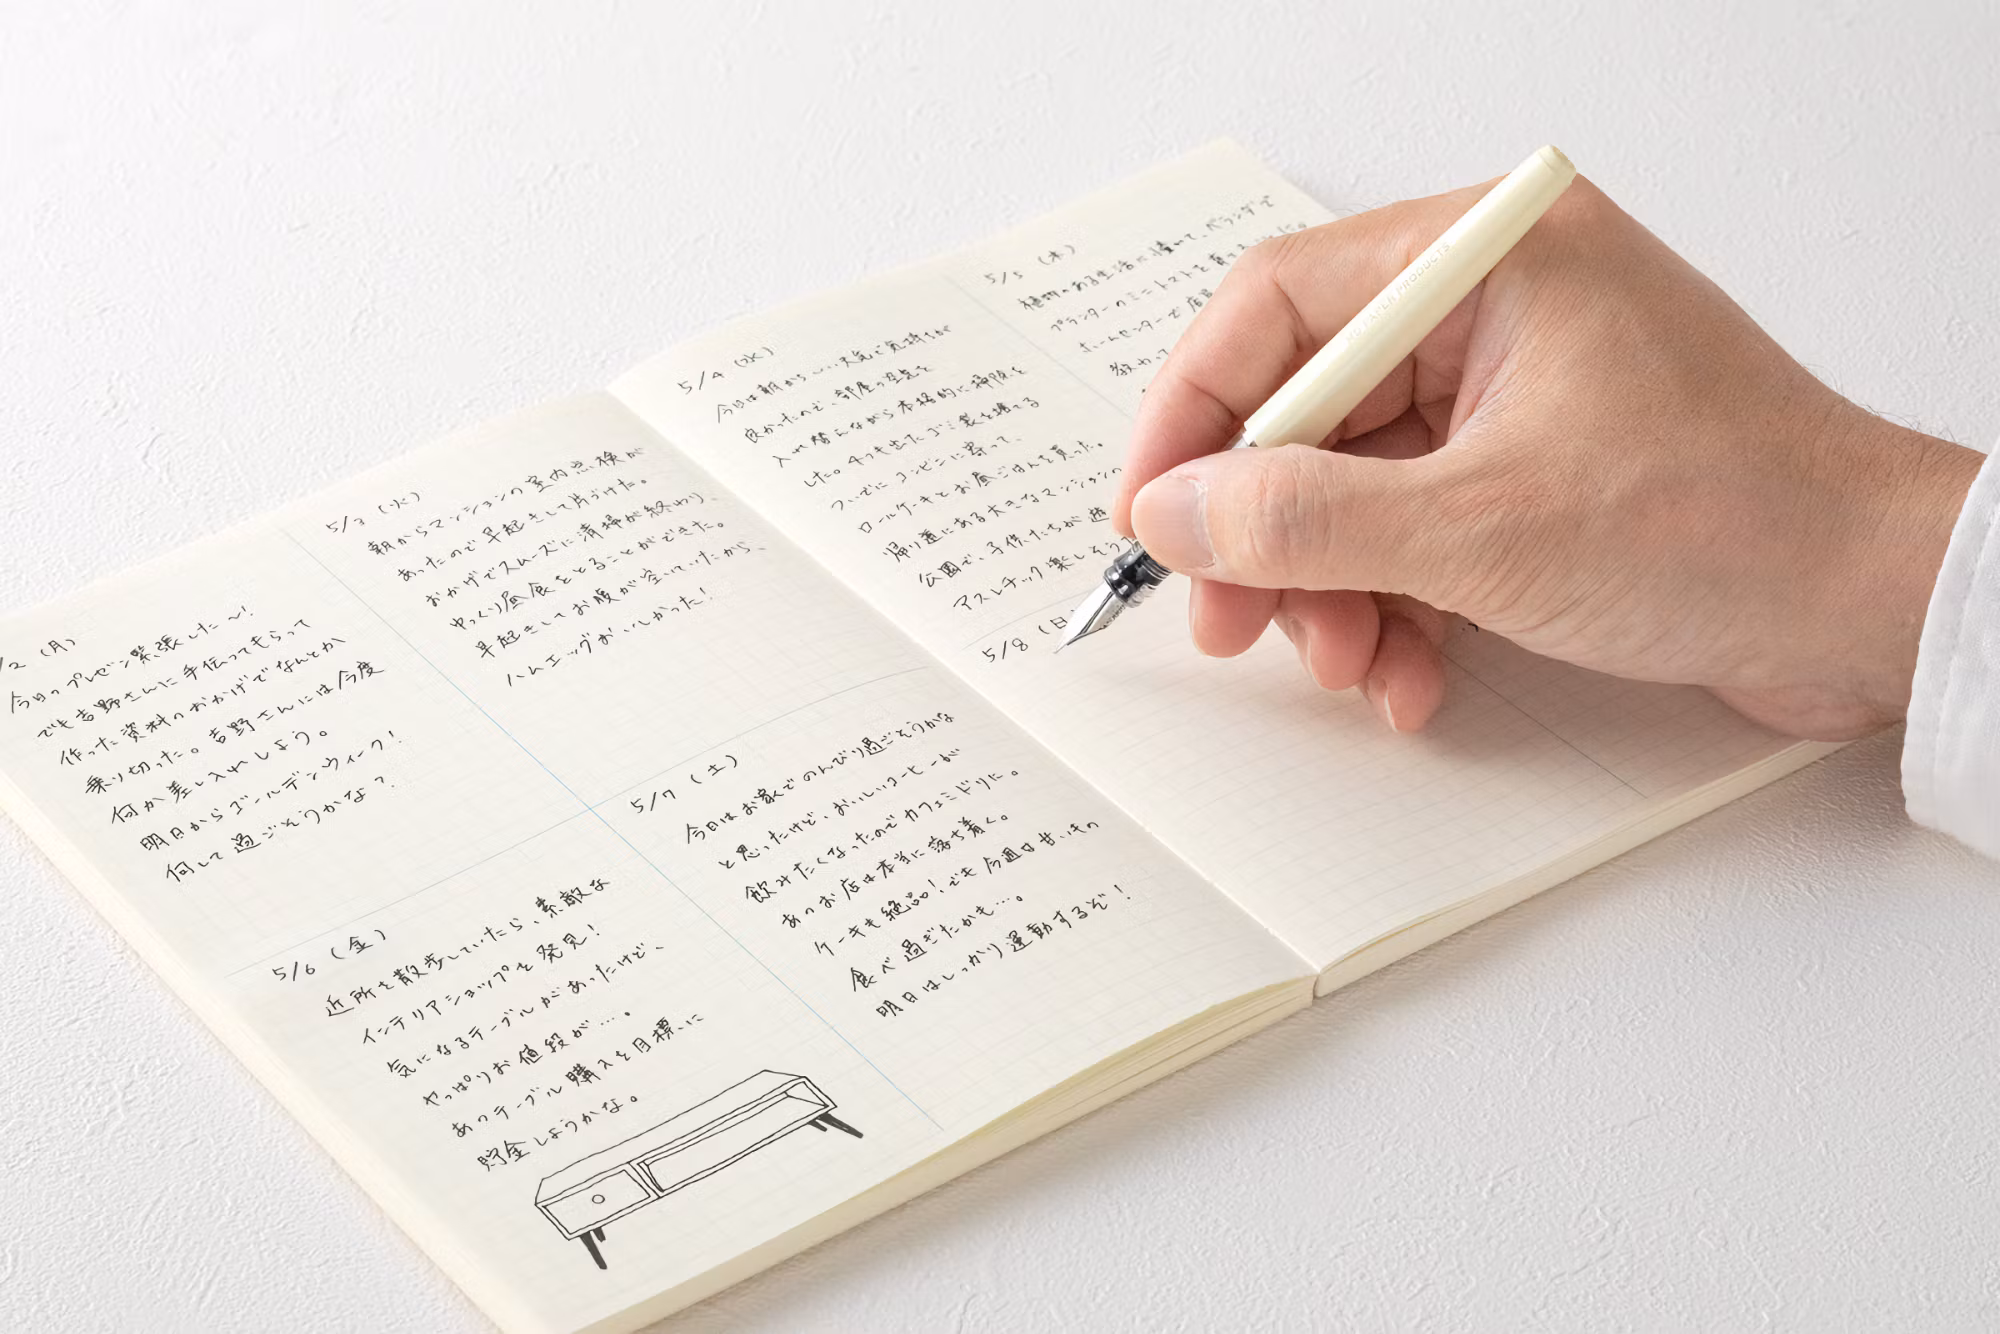 /2 (月)
今日のプレゼン緊張した〜!
でも吉野さんに手伝ってもらって
作った資料のおかげでなんとか
乗り切った。吉野さんには今度
何か差し入れしよう。
明日からゴールデンウィーク!
何して過ごそうかな?
5/3 (火)
朝からマンションの室内点検が
あったので早起きして片づけた。
おかげでスムーズに清掃が終わり、
ゆっくり昼食をとることができた。
早起きしてお腹が空いていたから、
ハムエッグがおいしかった!
5/6 (金)
近所を散歩していたら、素敵な
インテリアショップを発見!
気になるテーブルがあったけど、
やっぱりお値段が…。
あのテーブル購入を目標に
貯金しようかな。
5/7 (土)
今日はお家でのんびり過ごそうかな
と思ったけど、おいしいコーヒーが
飲みたくなったのでカフェミドリに。
あのお店は本当に落ち着く。
ケーキも絶品!でも今週は甘いもの
食べ過ぎたかも…。
明日はしっかり運動するぞ!
5/4 (水)
今日は朝から 天気で気持ちが
良かったので、部屋の空気を
入れ替えながら本格的に掃除を
した。4つも出たゴミ袋を捨てる
ついでにコンビニに寄って、
ロールケーキとお昼ごはんを買った。
帰り道にある大きなマンションの
公園で、子供たちが遊
アスレチック楽しそう
5/5 (木)
植物のある生活に憧れて、ベランダで
プランターのミニトマトを育て
ホームセンターで店員
教わって
5/8 (日
MD PAPER PRODUCTS